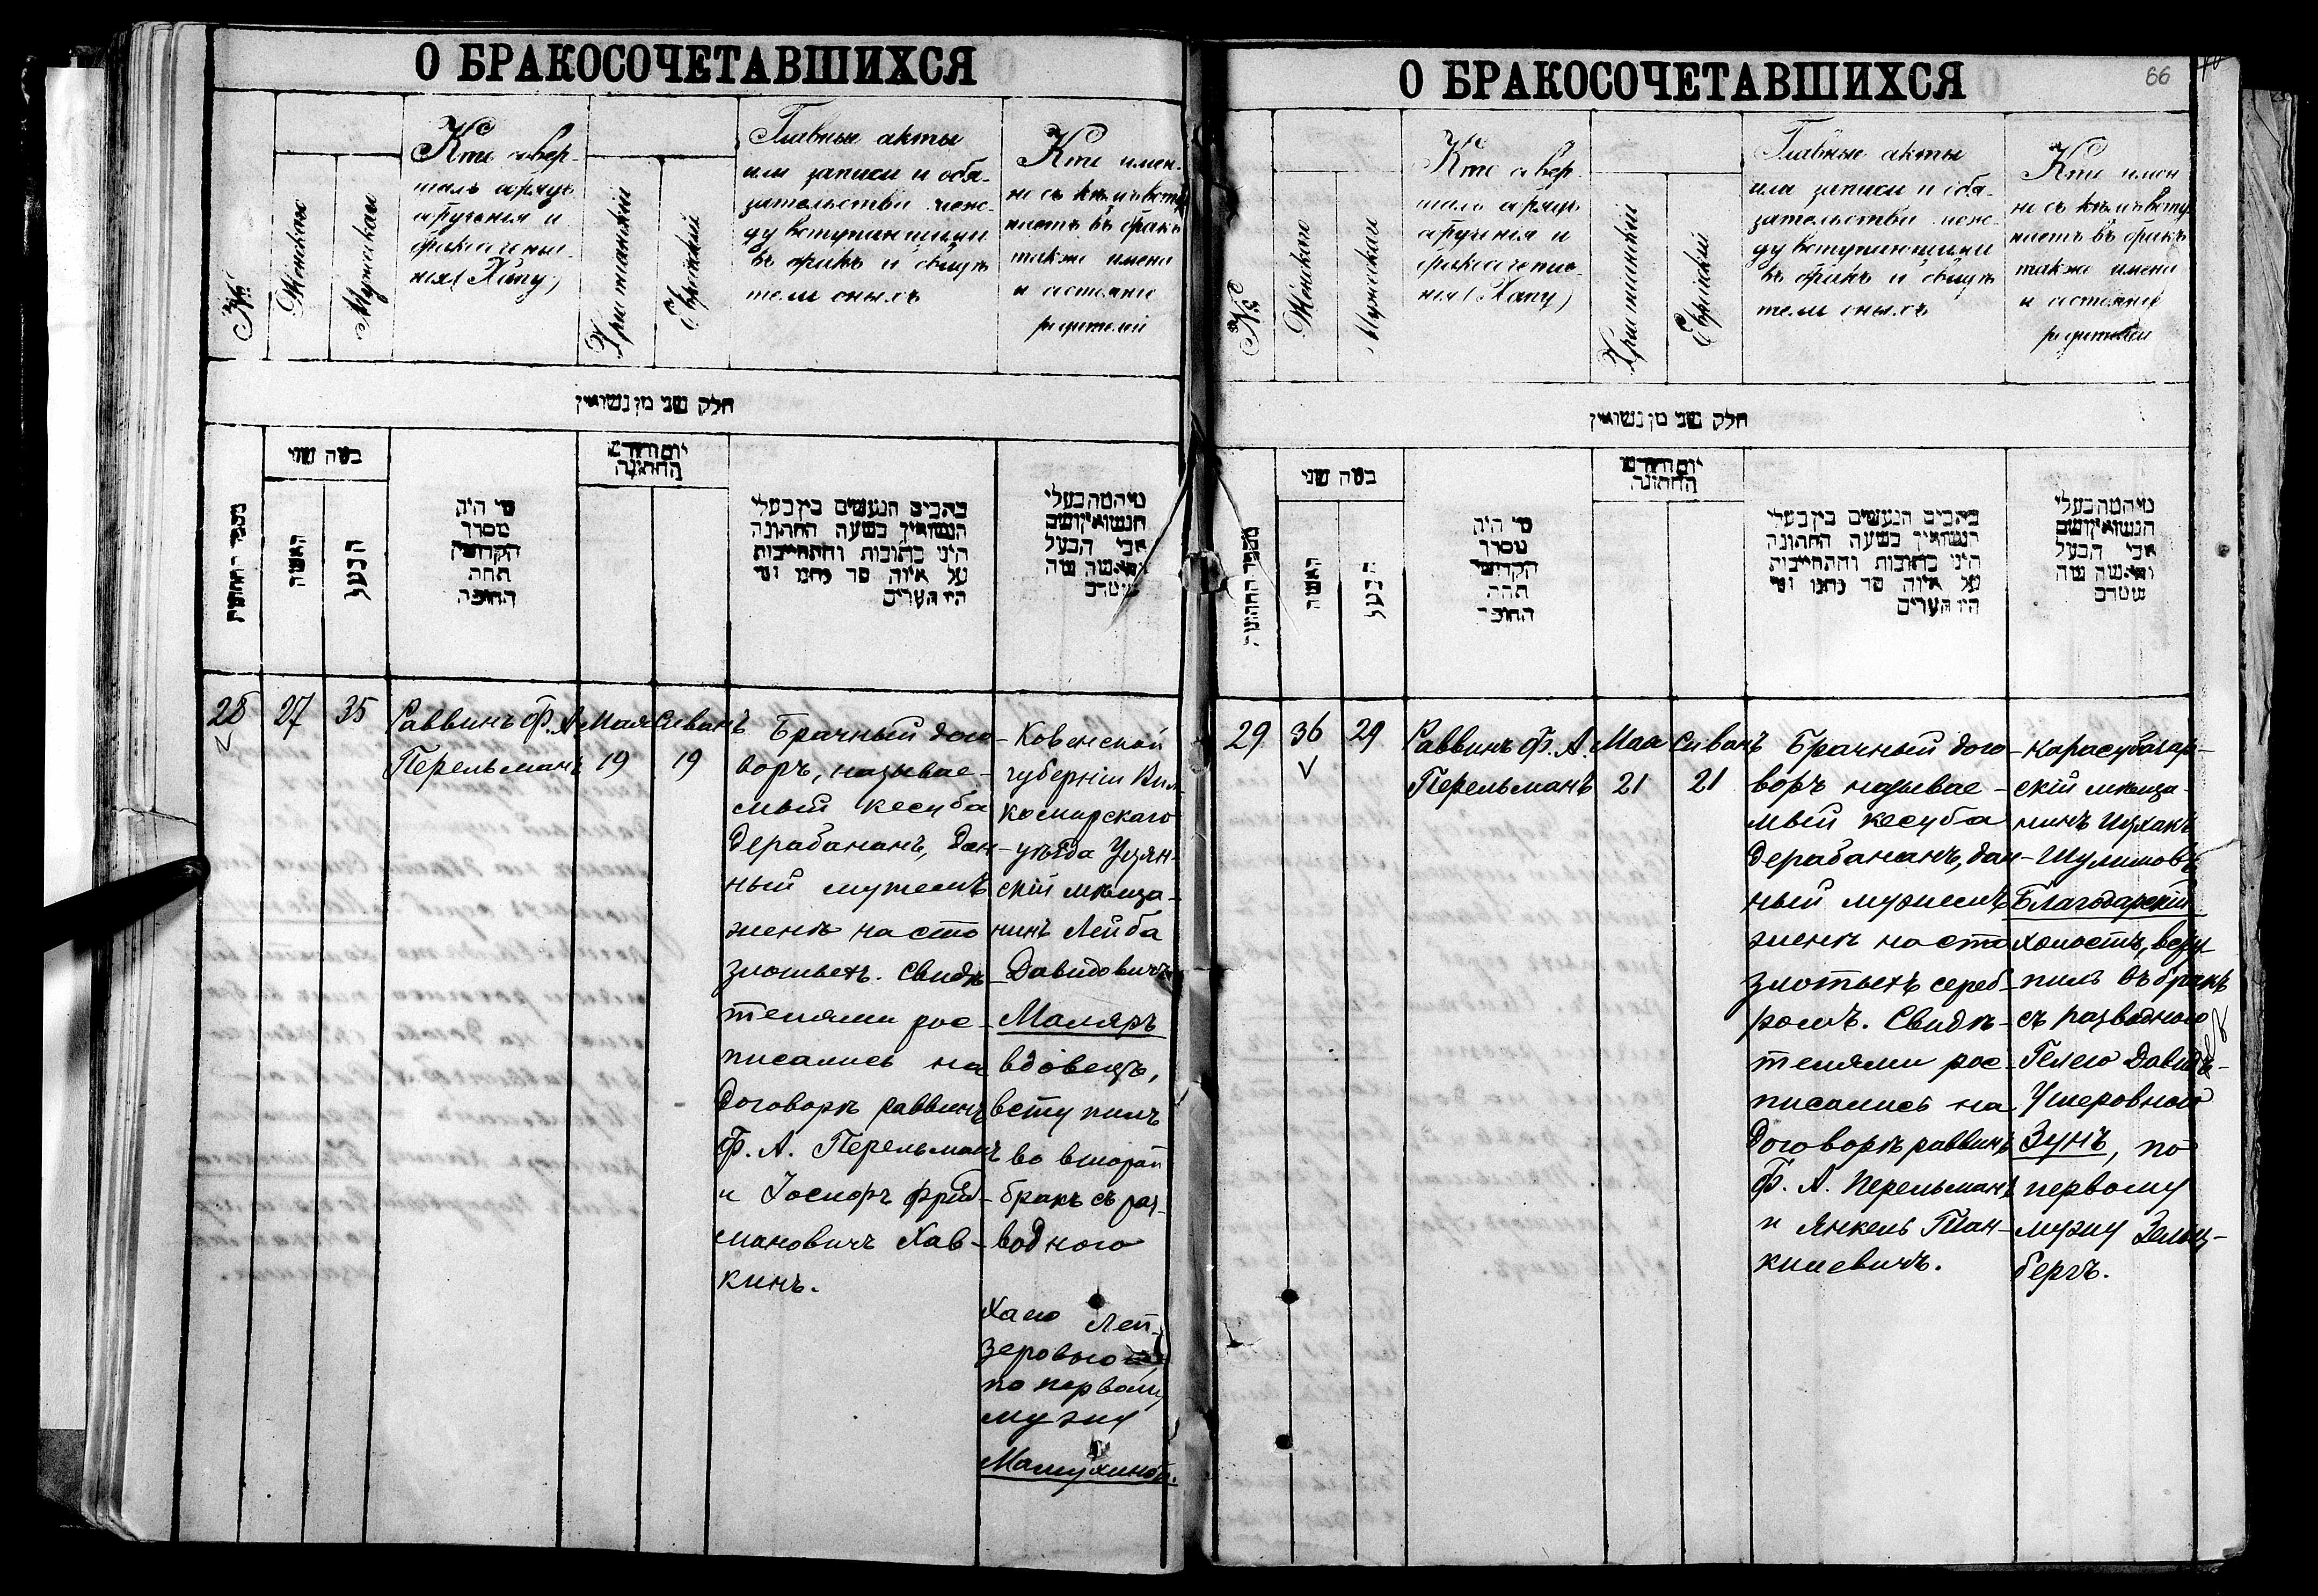 О БРАКОСОЧЕТАВШИХСЯ
№
Женскаго
Мужскаго
Кто совер-
шалъ обрядъ
обрученія и
бракосочета-
нія (Хупу)
Христіанскій
Еврейскій
Главные акты
или записи и обя-
зательства меж-
ду вступающими
въ бракъ и свидѣ-
тели оныхъ
Кто имен-
но съ кѣмъ всту-
паетъ въ бракъ
также имена
и состояніе
родителей
חלק שני מן נשואין
מספר החתונות
כמה שני
האשה
הבעל
מי היה
מסדר
הקדושין
תחת
החופה
יום וחודש
החתונה
כתבים הנעשים בין בעלי
הנשואין בשעה החתונה
היינו כתובות והתחייבות
על איזה סך נתנו ומי
היו העדים
מי המה בעלי
הנשואין ושם
אבי הבעל
והאשה
28
27
35
Раввинъ Ф. А.
Перельманъ
Мая
19
Сиванъ
19
Брачный дого-
воръ, называе-
мый кесуба
дерабананъ, дан-
ный мужемъ
женѣ на сто
злотыхъ. Свидѣ-
телями рос-
писались на
договорѣ раввинъ
Ф. А. Перельманъ
и Іосифъ Фрей-
мановичъ Хав-
кинъ.
Ковенской
губерніи Вил-
комирскаго
уѣзда Уцян-
скій мѣща-
нинъ Лейба
Давидовичъ
Маляръ
вдовецъ,
вступилъ
во второй
бракъ съ раз-
водного
Хаю Лей-
зеровною
по первому
мужу
О БРАКОСОЧЕТАВШИХСЯ
66
№
Женскаго
Мужскаго
Кто совер-
шалъ обрядъ
обрученія и
бракосочета-
нія (Хупу)
Христіанскій
Еврейскій
Главные акты
или записи и обя-
зательства меж-
ду вступающими
въ бракъ и свидѣ-
тели оныхъ
Кто имен-
но съ кѣмъ всту-
паетъ въ бракъ
также имена
и состояніе
родителей
חלק שני מן נשואין
מספר החתונות
כמה שני
האשה
הבעל
מי היה
מסדר
הקדושין
תחת
החופה
יום וחודש
החתונה
כתבים הנעשים בין בעלי
הנשואין בשעה החתונה
היינו כתובות והתחייבות
על איזה סך נתנו ומי
היו העדים
מי המה בעלי
הנשואין ושם
אבי הבעל
והאשה
29
36
29
Раввинъ Ф. А.
Перельманъ
Мая
21
Сиванъ
21
Брачный дого-
воръ называе-
мый кесуба
дерабананъ, дан-
ный мужемъ
женѣ на сто
злотыхъ сереб-
ромъ. Свидѣ-
телями рос-
писались на
договорѣ раввинъ
Ф. А. Перельманъ
и Янкель
Карасубазар-
скій мѣща-
нинъ Ицхакъ
Шулимовъ
Благодарскій
холостъ, всту-
пилъ въ бракъ
съ разводного
Гелею Давидъ-
Ушеровною
Зунъ, по
первому
мужу Зельц-
бергъ.